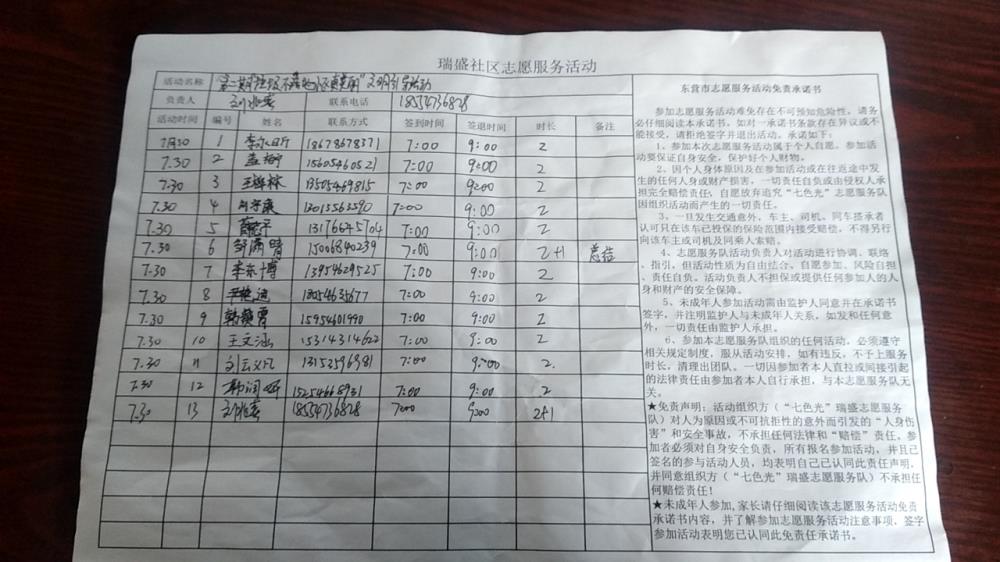 瑞盛社区志愿服务活动
活动名称
负责人 联系电话 18554736828
活动时间 编号 姓名 联系方式 签到时间 签退时间 时长 备注
7月30 1 18678678371 7:00 9:00 2
7.30 2 15605460521 7:00 9:00 2
7.30 3 13505469815 7:00 9:00 2
7.30 4 13015563590 7:00 9:00 2
7.30 5 13176645704 7:00 9:00 2
7.30 6 邹潇晴 15006840239 7:00 9:00 2+1 总结
7.30 7 李东博 13954629525 7:00 9:00 2
7.30 8 18054635677 7:00 9:00 2
7.30 9 15954601990 7:00 9:00 2
7.30 10 王文涵 15314314622 7:00 9:00 2
7.30 11 13153596981 7:00 9:00 2.
7.30 12 15254668931 7:00 9:00 2
7.30 13 18554736828 7:00 9:00 2+1
东营市志愿服务活动免责承诺书
参加志愿服务活动难免存在不可预知危险性，请务
必仔细阅读本承诺书。如对一承诺书条款存在异议或不
能接受，请拒绝签字并退出活动。承诺如下：
1、参加本次志愿服务活动属于个人自愿。参加活
动要保证自身安全，保护好个人财物。
2、因个人身体原因及在参加活动或在往返途中发
生的任何人身或财产损害，一切责任自负或由侵权人承
担完全赔偿责任；自愿放弃追究“七色光”志愿服务队
因组织活动而产生的一切责任。
3、一旦发生交通意外，车主、司机、同车搭承者
认可只在该车已投保的保险范围内接受赔偿，不得另行
向该车主或司机及同乘人索赔。
4、志愿服务队活动负责人对活动进行协调、联络
、指引，但活动性质为自由结合、自愿参加、风险自担
、责任自负。活动负责人不担保或提供任何参加人的人
身和财产的安全保障。
5、未成年人参加活动需由监护人同意并在承诺书
签字，并注明监护人与未成年人关系，如发和任何意
外，一切责任由监护人承担。
6、参加本志愿服务队组织的任何活动，必须遵守
相关规定制度，服从活动安排，如有违反，不予上服务
时长，清理出团队。一切因参加者本人直拉或间接引起
的法律责任由参加者本人自行承担，与本志愿服务队无
关。
★免责声明：活动组织方（“七色光”瑞盛志愿服务
队）对人为原因或不可抗拒性的意外而引发的“人身伤
害”和安全事故，不承担任何法律和“赔偿”责任。参
加者必须对自身安全负责，所有报名参加活动，并且已
签名的参与活动人员，均表明自己已认同此责任声明，
并同意组织方（“七色光”瑞盛志愿服务队）不承担任
何赔偿责任！
★未成年人参加，家长请仔细阅读该志愿服务活动免责
承诺书内容，并了解参加志愿服务活动注意事项、签字
参加活动表明您已认同此免责任承诺书。